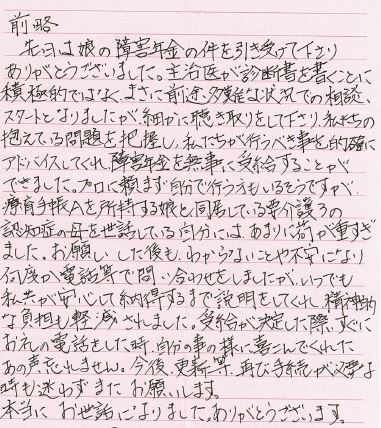 前略
先日は娘の障害年金の件を引き受けて下さり
ありがとうございました。主治医が診断書を書くことに
積極的ではなく、まさに前途多難な状況での相談、
スタートとなりましたが細かに聴き取りをして下さり、私たちの
抱えている問題を把握し、私たちが行うべき事を的確に
アドバイスしてくれ、障害年金を無事に受給することが
できました。プロに頼まず自分で行う方もいるそうですが、
療育手帳Aを所持する娘と同居している要介護3の
認知症の母を世話している自分にはあまりに荷が重すぎ
ました。お願いした後も、わからないことや不安になり
何度か電話等で問い合わせをしましたが、いつでも
私共が安心して納得するまで説明をしてくれ、精神的
な負担も軽減されました。受給が決定した際、すぐに
お礼の電話をした時、自分の事の様に喜こんでくれた
あの声忘れません。今後、更新等、再び手続が必要な
時も迷わずまたお願いします。
本当にお世話になりました。ありがとうございます。